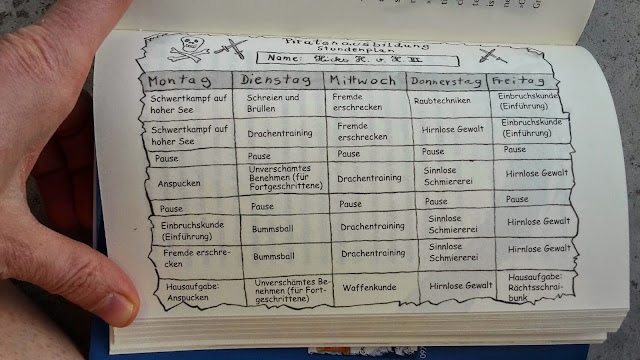 Piratenausbildung
Stundenplan
Name: Hicks H. v. H. III
Montag Dienstag Mittwoch Donnerstag Freitag
Schwertkampf auf hoher See Schreien und Brüllen Fremde erschrecken Raubtechniken Einbruchskunde (Einführung)
Schwertkampf auf hoher See Drachentraining Fremde erschrecken Hirnlose Gewalt Einbruchskunde (Einführung)
Pause Pause Pause Pause Pause
Anspucken Unverschämtes Benehmen (für Fortgeschrittene) Drachentraining Sinnlose Schmiererei Hirnlose Gewalt
Pause Pause Pause Pause Pause
Einbruchskunde (Einführung) Bummsball Drachentraining Sinnlose Schmiererei Hirnlose Gewalt
Fremde erschre-cken Bummsball Drachentraining Sinnlose Schmiererei Hirnlose Gewalt
Hausaufgabe: Anspucken Unverschämtes Be-nehmen (für Fort-geschrittene) Waffenkunde Hirnlose Gewalt Hausaufgabe: Rächtsschrai-bunk